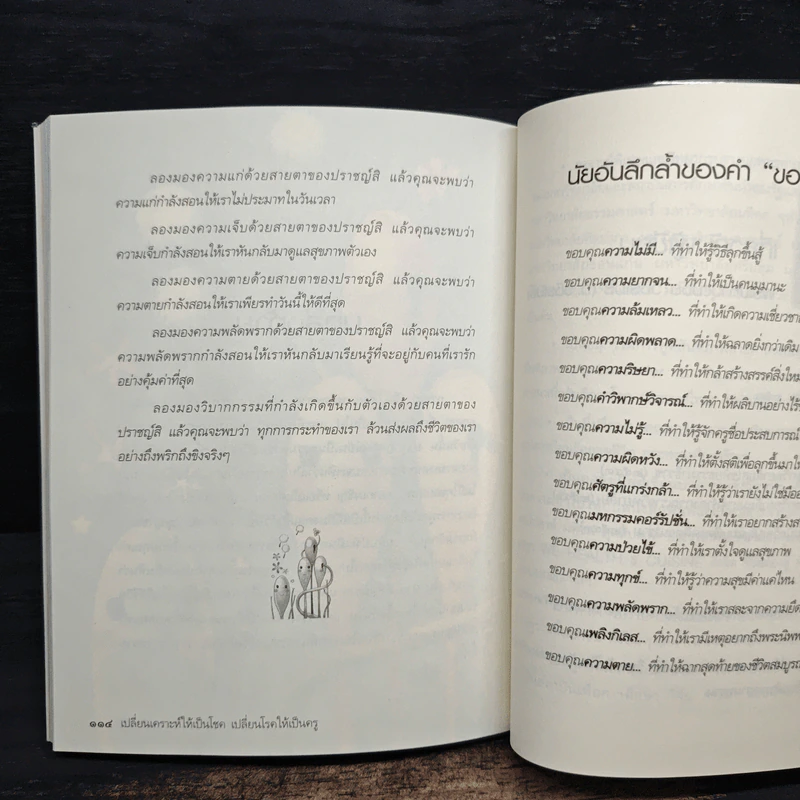 ลองมองความแก่ด้วยสายตาของปราชญ์สิ แล้วคุณจะพบว่า
ความแก่กำลังสอนให้เราไม่ประมาทในวันเวลา
ลองมองความเจ็บด้วยสายตาของปราชญ์สิ แล้วคุณจะพบว่า
ความเจ็บกำลังสอนให้เราหันกลับมาดูแลสุขภาพตัวเอง
ลองมองความตายด้วยสายตาของปราชญ์สิ แล้วคุณจะพบว่า
ความตายกำลังสอนให้เราเพียรทำวันนี้ให้ดีที่สุด
ลองมองความพลัดพรากด้วยสายตาของปราชญ์สิ แล้วคุณจะพบว่า
ความพลัดพรากกำลังสอนให้เราหันกลับมาเรียนรู้ที่จะอยู่กับคนที่เรารัก
อย่างคุ้มค่าที่สุด
ลองมองวิบากกรรมที่กำลังเกิดขึ้นกับตัวเองด้วยสายตาของ
ปราชญ์สิ แล้วคุณจะพบว่า ทุกการกระทำของเรา ล้วนส่งผลถึงชีวิตของเรา
อย่างถึงพริกถึงขิงจริงๆ
๑๑๔ เปลี่ยนเคราะห์ให้เป็นโชค เปลี่ยนโรคให้เป็นครู
นัยอันลึกล้ำของคำ “ขอ
ขอบคุณความไม่มี... ที่ทำให้รู้วิธีลุกขึ้นสู้
ขอบคุณความยากจน... ที่ทำให้เป็นคนมุมานะ
ขอบคุณความล้มเหลว... ที่ทำให้เกิดความเชี่ยวชา
ขอบคุณความผิดพลาด... ที่ทำให้ฉลาดยิ่งกว่าเดิม
ขอบคุณความริษยา... ที่ทำให้กล้าสร้างสรรค์สิ่งใหม
ขอบคุณคำวิพากษ์วิจารณ์... ที่ทำให้ผลิบานอย่างไร้
ขอบคุณความไม่รู้... ที่ทำให้รู้จักครูชื่อประสบการณ์
ขอบคุณความผิดหวัง... ที่ทำให้ตั้งสติเพื่อลุกขึ้นมาให
ขอบคุณศัตรูที่แกร่งกล้า... ที่ทำให้รู้ว่าเรายังไม่ใช่มืออ
ขอบคุณมหกรรมคอร์รัปชั่น... ที่ทำให้เราอยากสร้างส
ขอบคุณความป่วยไข้... ที่ทำให้เราตั้งใจดูแลสุขภาพ
ขอบคุณความทุกข์... ที่ทำให้รู้ว่าความสุขมีค่าแค่ไหน
ขอบคุณความพลัดพราก... ที่ทำให้เราสละจากความยึด
ขอบคุณเพลิงกิเลส... ที่ทำให้เรามีเหตุอยากถึงพระนิพพ
ขอบคุณความตาย... ที่ทำให้ฉากสุดท้ายของชีวิตสมบูรณ